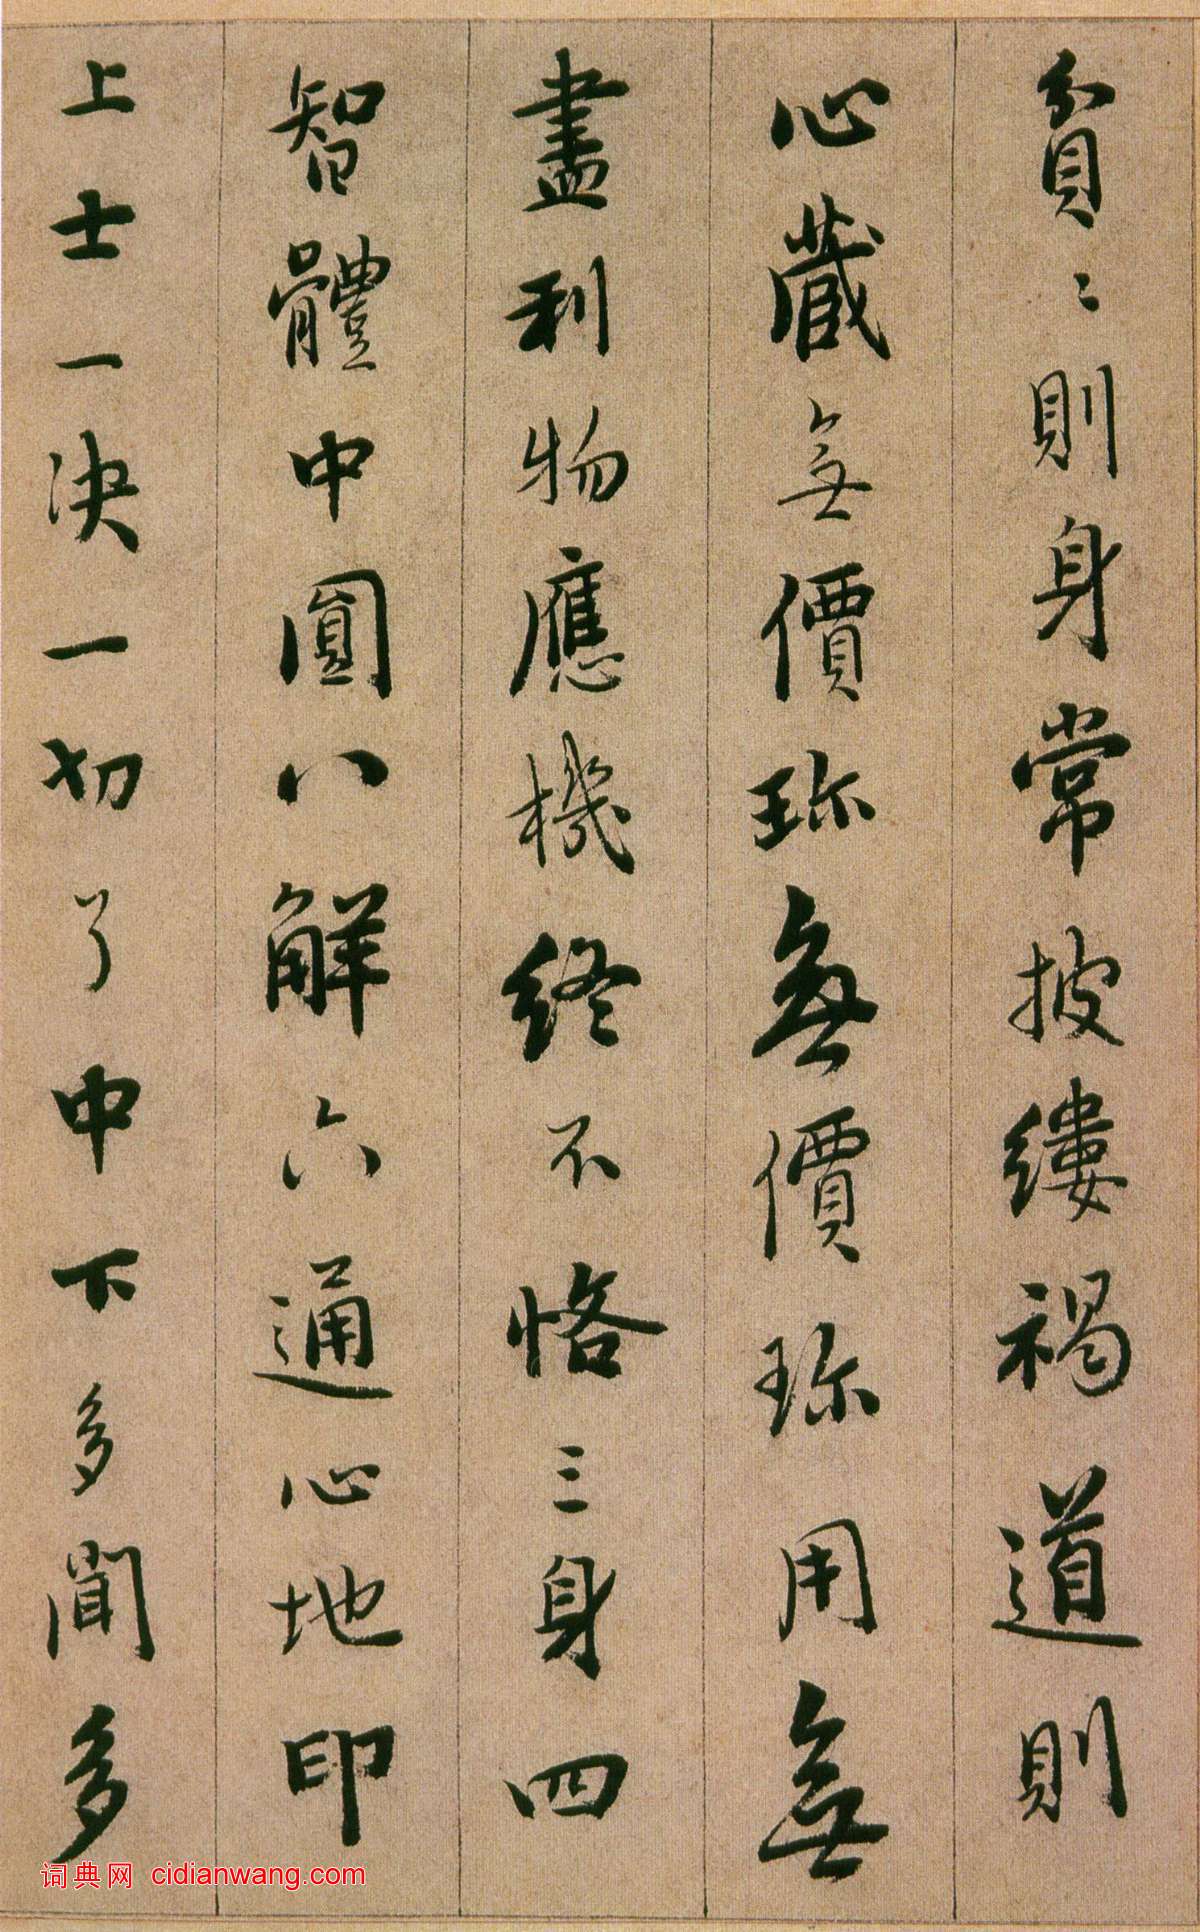 貧〻則身常披縷褐道則
心藏無價珎無價珎用無
盡利物應機終不悋三身四
智體中圓八解六通心地印
上士一決一切了中下多聞多
词典网 cidianwang.com